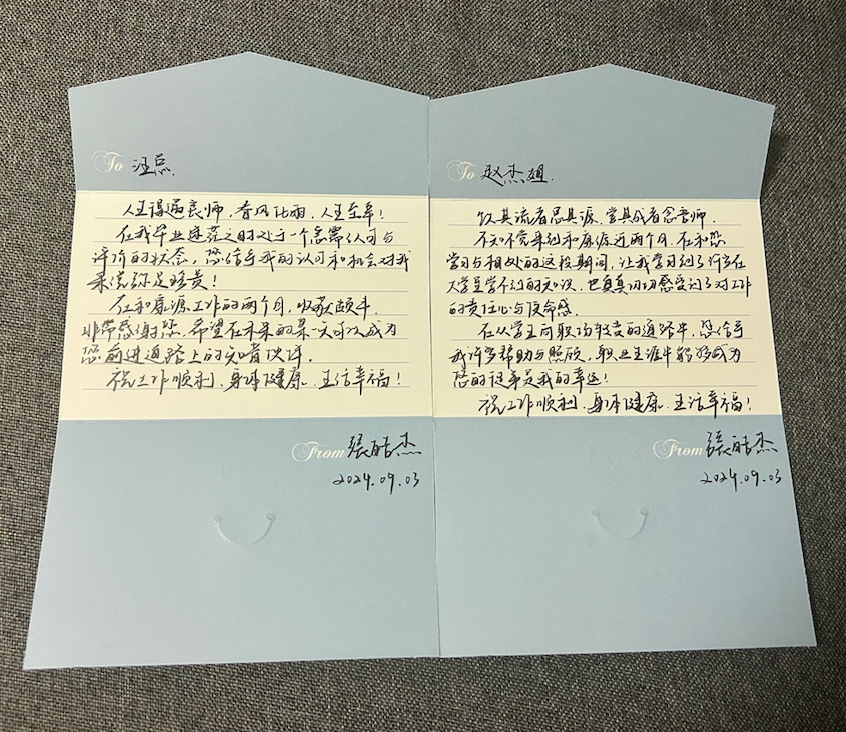 To 汪总.
人生得遇良师，春风化雨，人生至幸！
在我毕业迷茫之时处于一个急需认可与
评价的状态，您给予我的认可和机会对我
来说弥足珍贵！
在和康源工作的两个月，收获颇丰
非常感谢您，希望在未来的某一天可以成为
您前进道路上的知音伙伴.
祝工作顺利、身体健康、生活幸福！
From 張皓杰
2024.09.03
To 赵杰姐.
饮其流者思其源，学其成者念吾师.
不知不觉来到和康源近两个月，在和您
学习与相处的这段期间，让我学习到了许多在
大学里学不到的知识，也真真切切感受到了对工作
的责任心与使命感.
在从学生向职场转变的道路中，您给予
我许多帮助与照顾，职业生涯中能够成为
您的徒弟是我的幸运！
祝工作顺利、身体健康、生活幸福！
From 張皓杰
2024.09.03